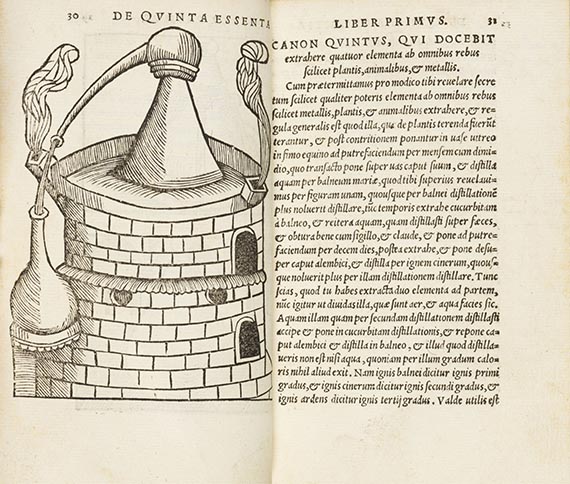 30 DE QVINTA ESSENTA
LIBER PRIMVS. 31
CANON QVINTVS, QVI DOCEBIT
extrahere quatuor elementa ab omnibus rebus
scilicet plantis, animalibus, & metallis.
Cum prætermittamus pro modico tibi revelare secre
tum scilicet qualiter poteris elementa ab omnibus rebus
scilicet metallis, plantis, & animalibus extrahere, & re-
gula generalis est quod illa, quæ de plantis terenda fuerũt
terantur, & post contritionem ponantur in uase uitreo
in fimo equino ad putrefaciendum per mensem cum dimi-
dio, quo transacto pone super uas caput suum, & distilla
aquam per balneum mariæ, quod tibi superius reuelaui-
mus per figuram unam, quousque per balnei distillationẽ
plus noluerit distillare, tũc temporis extrahe cucurbitam
à balneo, & reitera aquam, quam distillasti super fæces,
& obtura bene cum sigillo, & claude, & pone ad putre-
faciendum per decem dies, postea extrahe, & pone desu-
per caput alembici, & distilla per ignem cinerum, quous-
que noluerit plus per illam distillationem distillare. Tunc
scias, quod tu habes extracta duo elementa ad partem,
nũc igitur ut diuidas illa, quæ sunt aer, & aqua facies sic.
Aquam illam quam per secundam distillationem distillasti
accipe & pone in cucurbitam distillationis, & repone ca-
put alembici & distilla in balneo, & illud quod distilla-
ueris non est nisi aqua, quoniam per illum gradum calo-
ris nihil aliud exit. Nam ignis balnei dicitur ignis primi
gradus, & ignis cinerum dicitur ignis secundi gradus, &
ignis ardens dicitur ignis tertij gradus. Valde utilis est